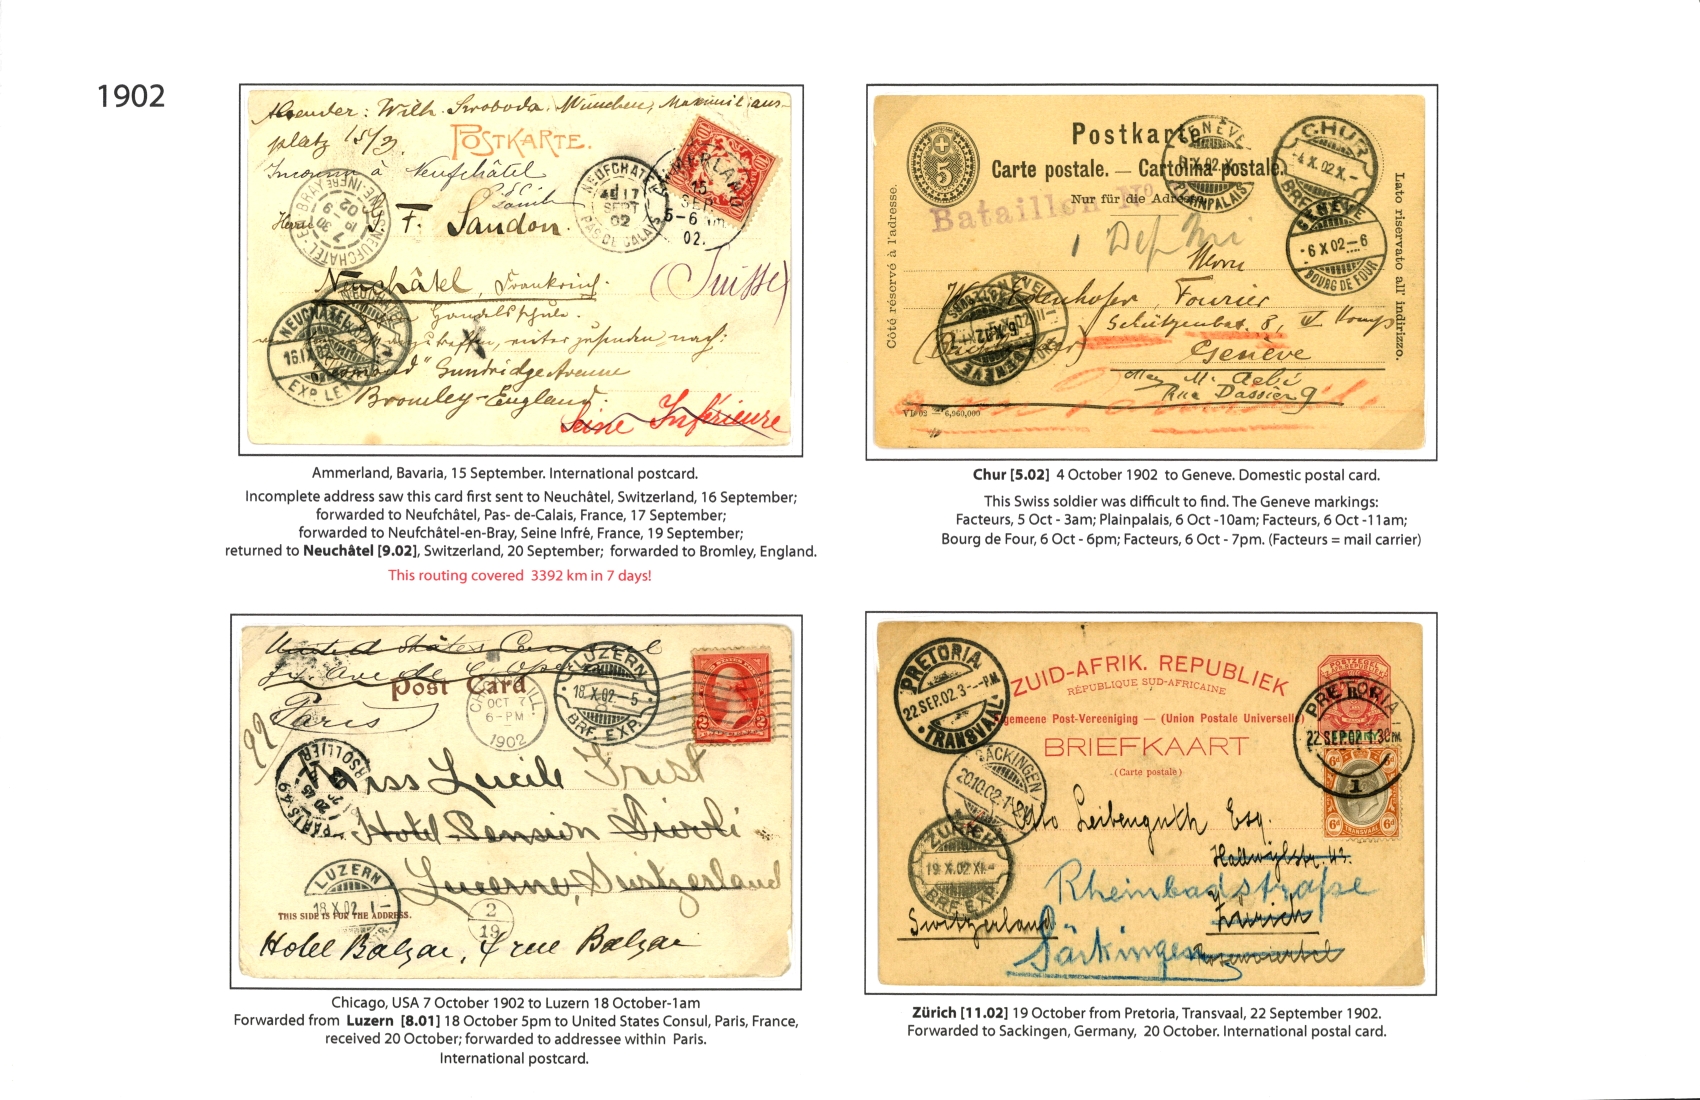 1902
Wilh. Svoboda. München, Maximilians-
platz 15/3.
POSTKARTE.
Inconnu à Neufchâtel
Herrn F. Sandon.
NEUFCHATEL
17
SEPT
02
PAS DE CALAIS
AMMERLAND
15.
SEP.
5-6
02.
Neuchâtel, Frankreich.
(Suisse)
Handelsschule.
nach:
Sundridge Avenue
Bromley-England.
NEUCHÂTEL
16.IX.02
EXP. LET.
Seine Inférieure
Ammerland, Bavaria, 15 September. International postcard.
Incomplete address saw this card first sent to Neuchâtel, Switzerland, 16 September;
forwarded to Neufchâtel, Pas- de-Calais, France, 17 September;
forwarded to Neufchâtel-en-Bray, Seine Infré, France, 19 September;
returned to Neuchâtel [9.02], Switzerland, 20 September; forwarded to Bromley, England.
This routing covered 3392 km in 7 days!
Postkarte.
Carte postale. — Cartolina postale.
Nur für die Adresse
5
Côté réservé à l'adresse.
Lato riservato all' indirizzo.
Bataillon No
GENÈVE
PLAINPALAIS
CHUR
4.X.02 X.-
GENÈVE
-6 X 02-6
BOURG DE FOUR
Herrn
Fourier
Schützenbat. 8,
Genève
Rue Dassier 9
VI 02 — 6,960,000
Chur [5.02] 4 October 1902 to Geneve. Domestic postal card.
This Swiss soldier was difficult to find. The Geneve markings:
Facteurs, 5 Oct - 3am; Plainpalais, 6 Oct -10am; Facteurs, 6 Oct -11am;
Bourg de Four, 6 Oct - 6pm; Facteurs, 6 Oct - 7pm. (Facteurs = mail carrier)
United States Consul
Paris
Post Card
OCT 7
6-PM
1902
LUZERN
18.X.02.-5
BRF. EXP.
Miss Lucile Trist
Hotel Pension Tivoli
Lucerne, Switzerland
LUZERN
18.X.02. 1-
THIS SIDE IS FOR THE ADDRESS.
2
19
Hotel Balzac, 4 rue Balzac
Chicago, USA 7 October 1902 to Luzern 18 October-1am
Forwarded from Luzern [8.01] 18 October 5pm to United States Consul, Paris, France,
received 20 October; forwarded to addressee within Paris.
International postcard.
PRETORIA
22 SEP.02. 3--P.M
TRANSVAAL
ZUID-AFRIK. REPUBLIEK
RÉPUBLIQUE SUD-AFRICAINE
Algemeene Post-Vereeniging — (Union Postale Universelle)
BRIEFKAART
(Carte postale)
PRETORIA
22 SEP.02
1
6d 6d
6d TRANSVAAL 6d
SÄCKINGEN
20.10.02.
ZÜRICH
19.X.02 XI.-
BRF. EXP.
Otto Leibenguth Esq.
Hallwylstr. 42.
Rheinbadstraße
Zürich
Switzerland
Säckingen
Zürich [11.02] 19 October from Pretoria, Transvaal, 22 September 1902.
Forwarded to Sackingen, Germany, 20 October. International postal card.